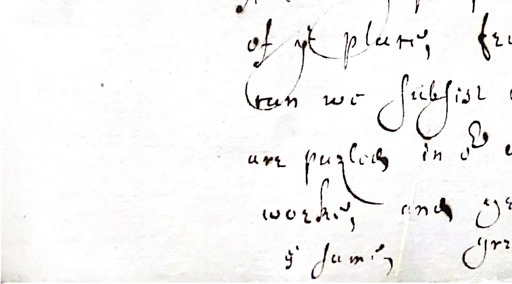 of yt place,
can we subsist
are puzled in or
worke, and ye
ye same,